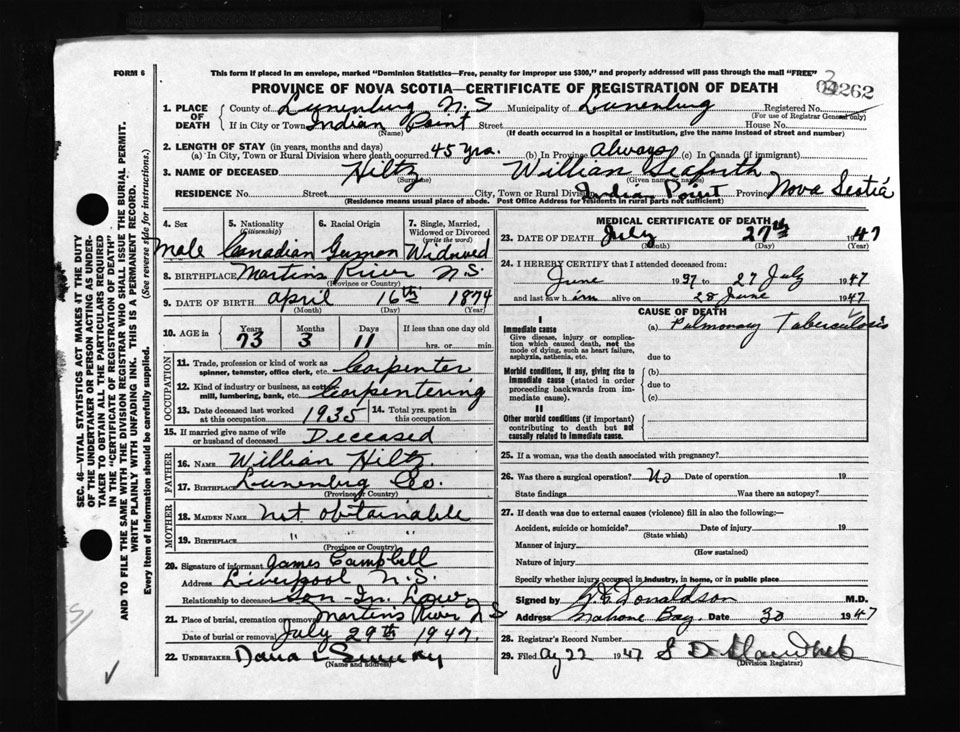 FORM 6
This form if placed in an envelope, marked "Dominion Statistics—Free, penalty for improper use $300," and properly addressed will pass through the mail "FREE"
PROVINCE OF NOVA SCOTIA—CERTIFICATE OF REGISTRATION OF DEATH
04262
1. PLACE OF DEATH
County of Lunenburg N.S Municipality of Lunenburg Registered No.
(For use of Registrar General only)
If in City or Town Indian Point Street House No.
(Name) (If death occurred in a hospital or institution, give the name instead of street and number)
2. LENGTH OF STAY (in years, months and days)
(a) In City, Town or Rural Division where death occurred 45 yrs. (b) In Province Always (c) In Canada (if immigrant)
3. NAME OF DECEASED Hiltz Willian Seaforth
(Surname) (Given name or names)
RESIDENCE No. Street City, Town or Rural Division Indian Point Province Nova Scotia
(Residence means usual place of abode. Post Office Address for residents in rural parts not sufficient)
4. Sex 5. Nationality (Citizenship) 6. Racial Origin 7. Single, Married, Widowed or Divorced (write the word)
Male Canadian German Widowed
8. BIRTHPLACE Martins River N.S.
(Province or Country)
9. DATE OF BIRTH April 16th 1874
(Month) (Day) (Year)
10. AGE in Years Months Days If less than one day old
73 3 11 hrs. or min.
OCCUPATION
11. Trade, profession or kind of work as spinner, teamster, office clerk, etc. Carpenter
12. Kind of industry or business, as cotton mill, lumbering, bank, etc. Carpentering
13. Date deceased last worked at this occupation 1935 14. Total yrs. spent in this occupation
15. If married give name of wife or husband of deceased Deceased
FATHER
16. NAME Willian Hiltz.
17. BIRTHPLACE Lunenburg Co.
(Province or Country)
MOTHER
18. MAIDEN NAME Not obtainable
19. BIRTHPLACE " " "
(Province or Country)
20. Signature of informant James Campbell
Address Liverpool N.S.
Relationship to deceased Son-In-Law
21. Place of burial, cremation or removal Martins River N S
Date of burial or removal July 29th 1947.
22. UNDERTAKER
(Name and address)
MEDICAL CERTIFICATE OF DEATH
23. DATE OF DEATH July 27th 1947
(Month) (Day) (Year)
24. I HEREBY CERTIFY that I attended deceased from:
June 1937 to 27 July 1947
and last saw him alive on 28 June 1947
CAUSE OF DEATH
I
Immediate cause (a) Pulmonary Tuberculosis
Give disease, injury or complication which caused death, not the mode of dying, such as heart failure, asphyxia, asthenia, etc. due to
Morbid conditions, if any, giving rise to immediate cause (stated in order proceeding backwards from immediate cause). (b) due to (c)
II
Other morbid conditions (if important) contributing to death but not causally related to immediate cause.
25. If a woman, was the death associated with pregnancy?
26. Was there a surgical operation? No Date of operation 19
State findings Was there an autopsy?
27. If death was due to external causes (violence) fill in also the following:—
Accident, suicide or homicide? Date of injury 19
(State which)
Manner of injury
(How sustained)
Nature of injury
Specify whether injury occurred in industry, in home, or in public place
Signed by Donaldson M.D.
Address Mahone Bay. Date 30 1947
28. Registrar's Record Number
29. Filed Aug 22 1947
(Division Registrar)
SEC. 46—VITAL STATISTICS ACT MAKES IT THE DUTY
OF THE UNDERTAKER OR PERSON ACTING AS UNDER-
TAKER TO OBTAIN ALL THE PARTICULARS REQUIRED
IN THE "CERTIFICATE OF REGISTRATION OF DEATH"
AND TO FILE THE SAME WITH THE DIVISION REGISTRAR WHO SHALL ISSUE THE BURIAL PERMIT.
WRITE PLAINLY WITH UNFADING INK. THIS IS A PERMANENT RECORD.
Every item of information should be carefully supplied. (See reverse side for instructions.)